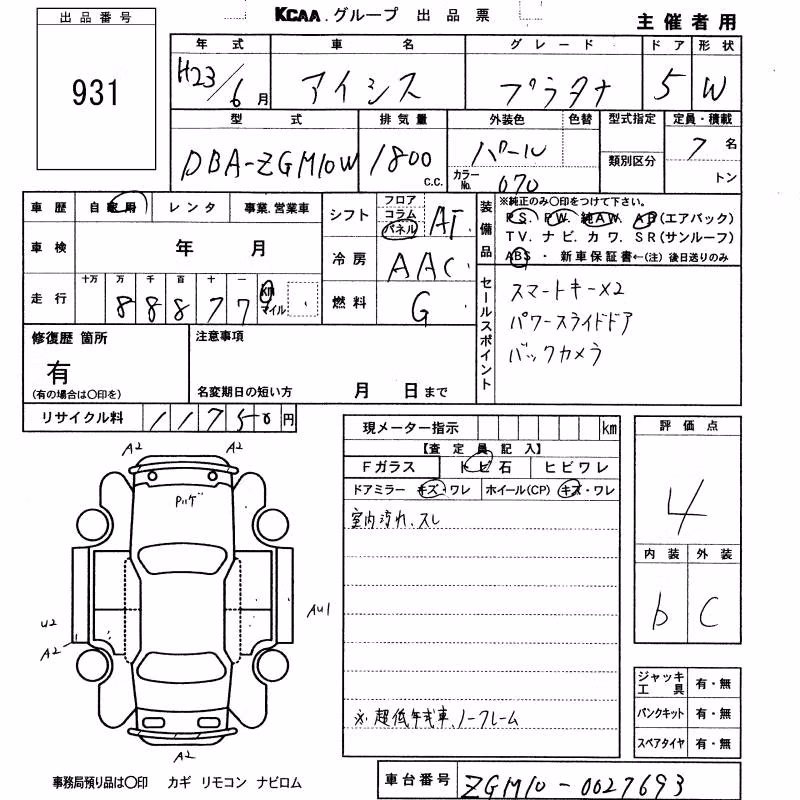 出品番号
931
KCAA.グループ 出品票
主催者用
年式 車名 グレード ドア 形状
H23/6月 アイシス プラタナ 5 W
型式 排気量 外装色 色替 型式指定 定員・積載
DBA-ZGM10W 1800 c.c. パール 7名
カラーNo. 070 類別区分 トン
車歴 自家用 レンタ 事業.営業車
車検 年 月
走行 十万 万 千 百 十 一
8 8 8 7 7 km マイル
シフト フロア コラム パネル AT
冷房 AAC
燃料 G
装備品 ※純正のみ〇印をつけて下さい。
PS. PW. 純AW. AB(エアバック)
TV. ナビ. カワ. SR(サンルーフ)
ABS ・ 新車保証書←(注) 後日送りのみ
セールスポイント
スマートキー×2
パワースライドドア
バックカメラ
修復歴 箇所
有
(有の場合は〇印を)
注意事項
名変期日の短い方 月 日まで
リサイクル料 11750円
現メーター指示 km
【査定員記入】
Fガラス トビ石 ヒビワレ
ドアミラー キズ・ワレ ホイール(CP) キズ・ワレ
室内汚れ、スレ
※超低年式車、ノークレーム
評価点
4
内装 外装
b C
ジャッキ工具 有・無
パンクキット 有・無
スペアタイヤ 有・無
A2 A2
U2
A2
AU1
A2
事務局預り品は〇印 カギ リモコン ナビロム
車台番号 ZGM10-0027693